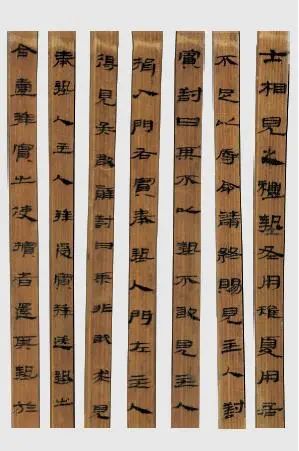 士相見之禮摯冬用雉夏用居
不足以辱命請終賜見主人對
賓對曰某不以摯不敢見主人
揖入門右賓奉摯入門左主人
得見矣敢辭對曰某非敢求見
奉摯入主人拜受賓拜送摯出
合壹拜賓出使擯者還其摯於